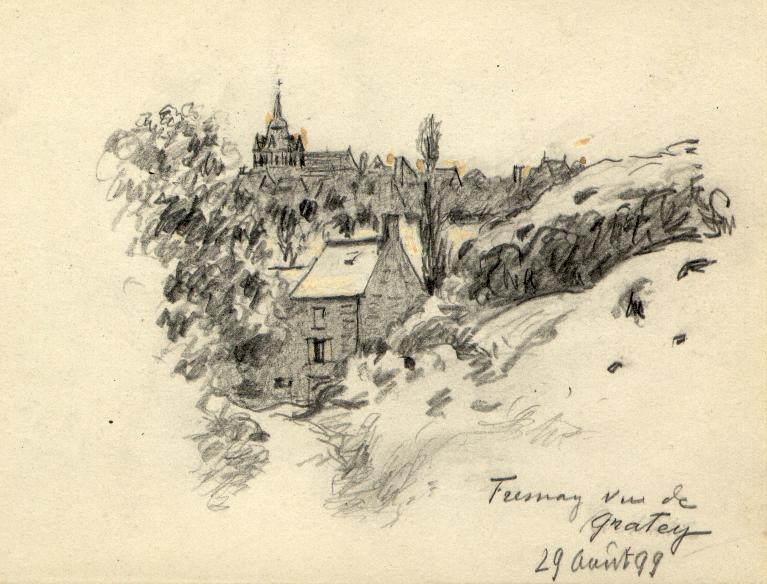 Fresnay vue de
Gratey
29 Août 99